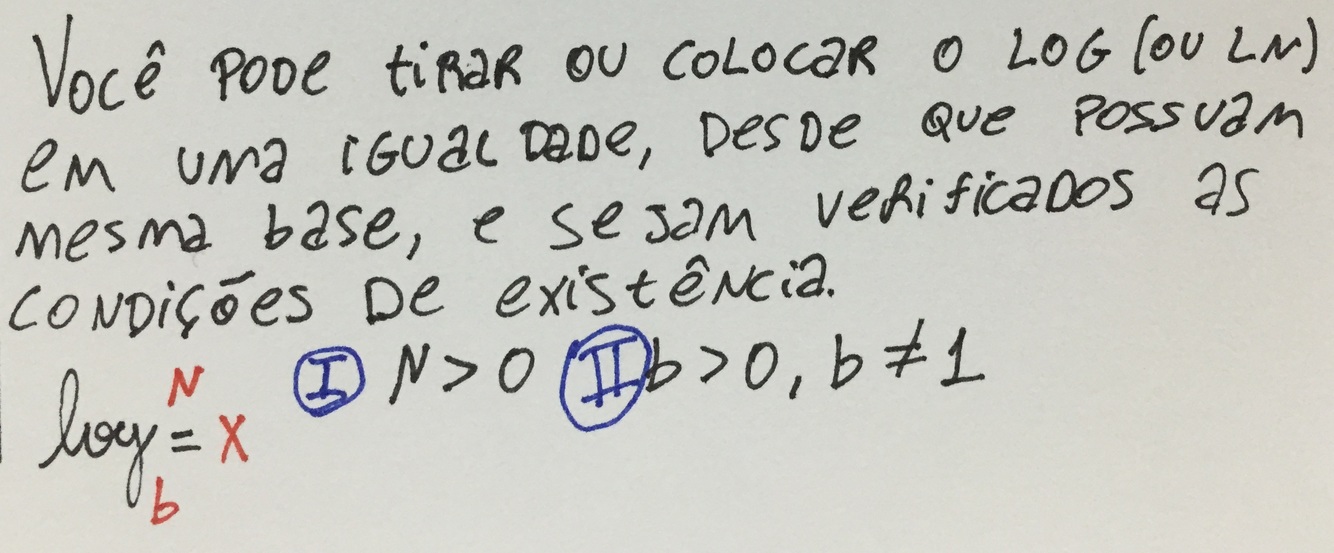 Você PODE tiRAR OU COLOCAR O LOG (OU LN)
EM UMA IGUALDADE, DESDE QUE POSSUAM
MESMA BASE, E SEJAM VERIFICADOS AS
CONDIÇÕES DE EXISTÊNCIA.
log_b^N = X (I) N > 0 (II) b > 0, b ≠ 1